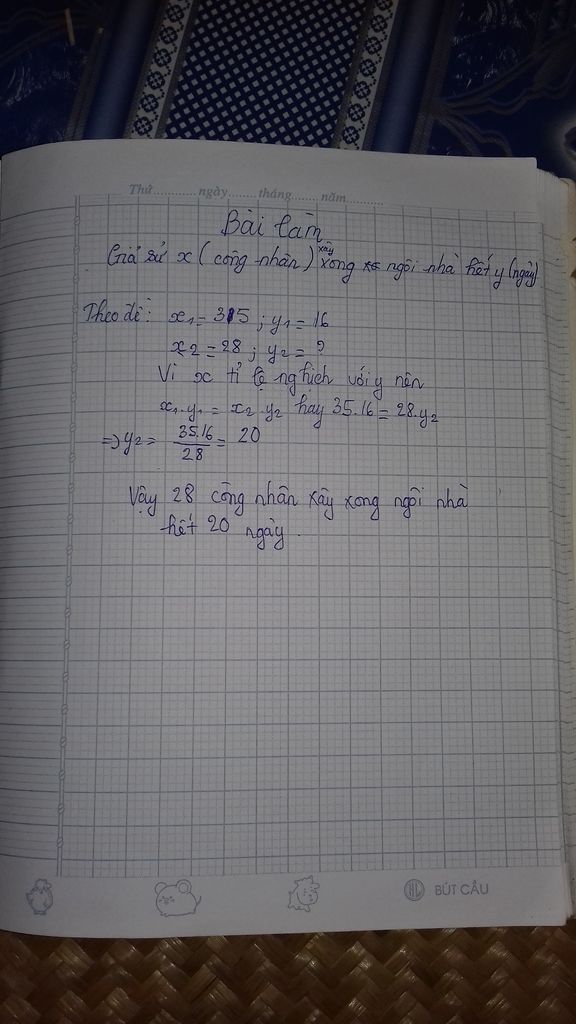 Thứ............ngày........tháng........năm...........
Bài làm
Giả sử x (công nhân) xây xong ngôi nhà hết y (ngày)
Theo đề: x₁ = 35 ; y₁ = 16
x₂ = 28 ; y₂ = ?
Vì x tỉ lệ nghịch với y nên
x₁.y₁ = x₂.y₂ hay 35.16 = 28.y₂
=> y₂ = 35.16/28 = 20
Vậy 28 công nhân xây xong ngôi nhà
hết 20 ngày.
BÚT CÂU